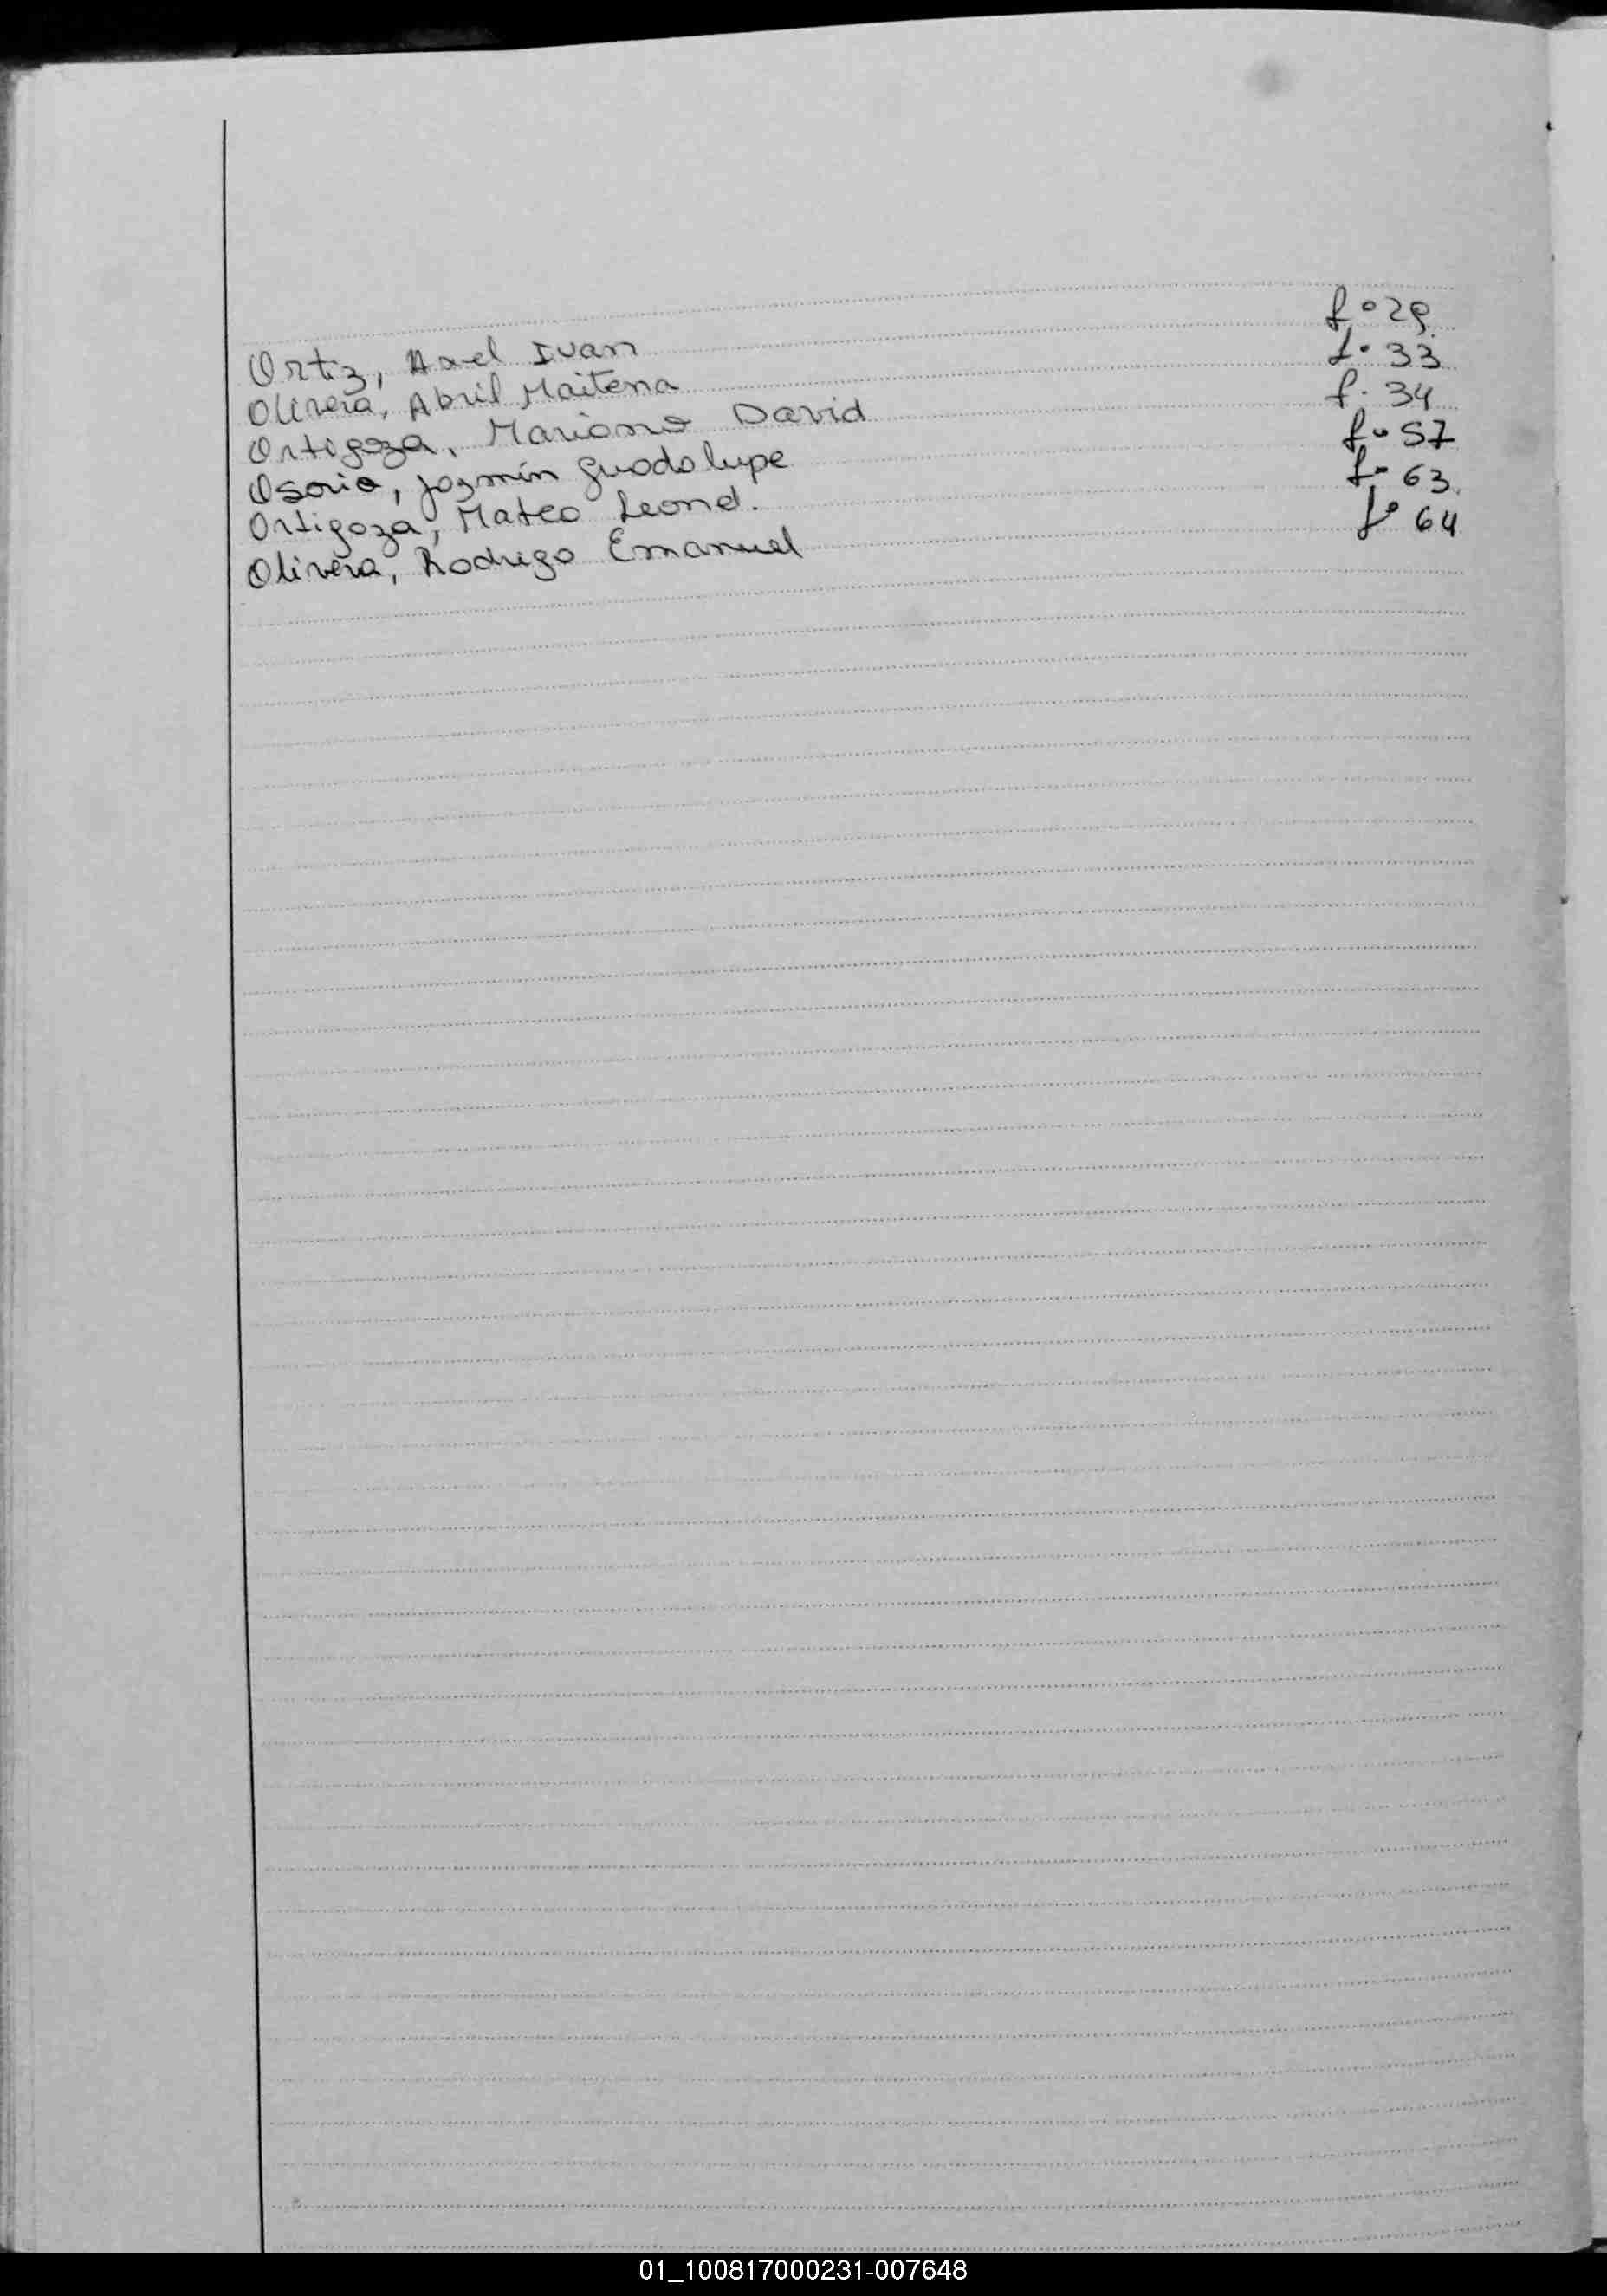 Ortiz, Axel Ivan f° 29
Olivera, Abril Maitena f° 33
Ortigoza, Mariano David f. 34
Osorio, Jazmín Guadalupe f° 57
Ortigoza, Mateo Leonel. f° 63
Olivera, Rodrigo Emanuel f° 64
01_100817000231-007648